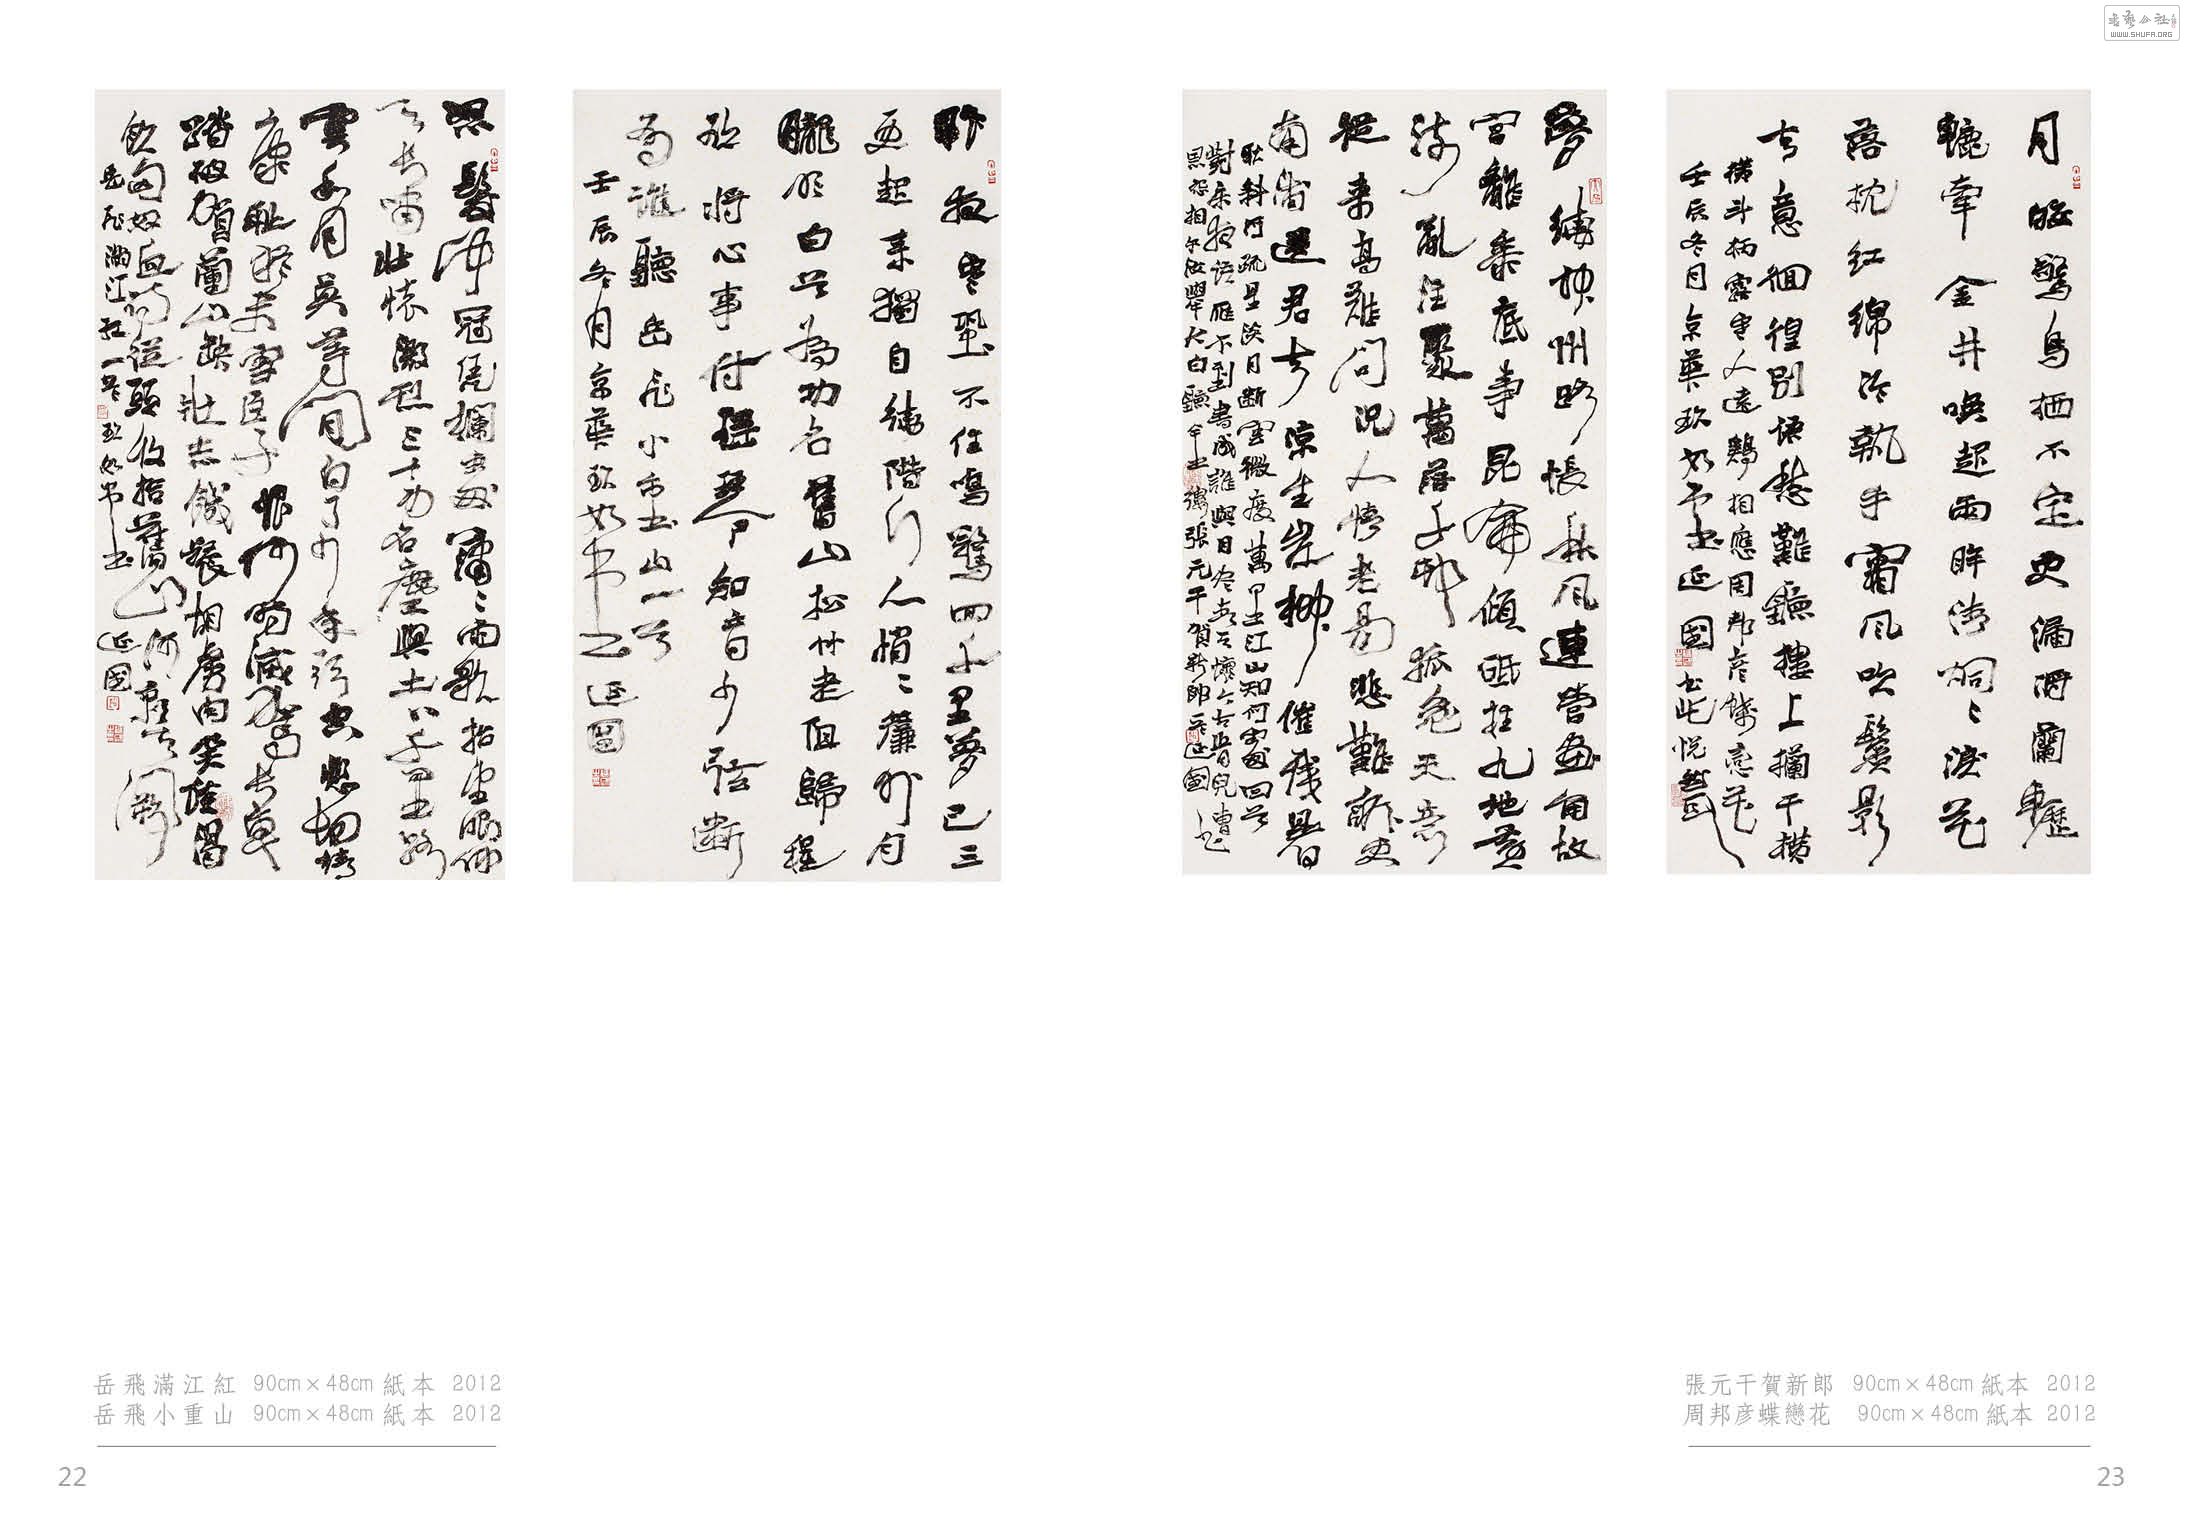 書藝公社
WWW.SHUFA.ORG
怒髮沖冠凭欄處瀟〻雨歇抬望眼仰
天長嘯壯懷激烈三十功名塵與土八千里路
雲和月莫等閒白了少年頭空悲切靖
康恥猶未雪臣子恨何時滅駕長車
踏破賀蘭山缺壯志饑餐胡虜肉笑談渴
飲匈奴血待從頭收拾舊山河朝天闕
岳飛滿江紅一首玖如書延國
昨夜寒蛩不住鳴驚回千里夢已三
更起來獨自繞階行人悄〻簾外月
朧明白首為功名舊山松竹老阻歸程
欲將心事付瑤琴知音少弦斷
有誰聽岳飛小重山一首
壬辰冬月京華玖如延國
夢繞神州路悵秋風連營畫角故
宮離黍底事昆侖傾砥柱九地黃
流亂注聚萬落千村狐兔天意
從來高難問況人情老易悲難訴更
南浦送君去涼生岸柳催殘暑
耿斜河疏星淡月斷雲微度萬里江山知何處回首
對床夜語雁不到書成誰與目盡青天懷今古肯兒曹
恩怨相爾汝舉大白聽金縷張元干賀新郎一首延國書
月皎驚烏栖不定更漏將闌轣
轆牽金井喚起兩眸清炯〻淚花
落枕紅綿冷執手霜風吹鬢影
去意徊徨別語愁難聽樓上攔干橫
橫斗柄露寒人遠鷄相應周邦彥蝶戀花
壬辰冬月京華玖如書延國
岳飛滿江紅 90cm×48cm 紙本 2012
岳飛小重山 90cm×48cm 紙本 2012
22
張元干賀新郎 90cm×48cm 紙本 2012
周邦彦蝶戀花 90cm×48cm 紙本 2012
23